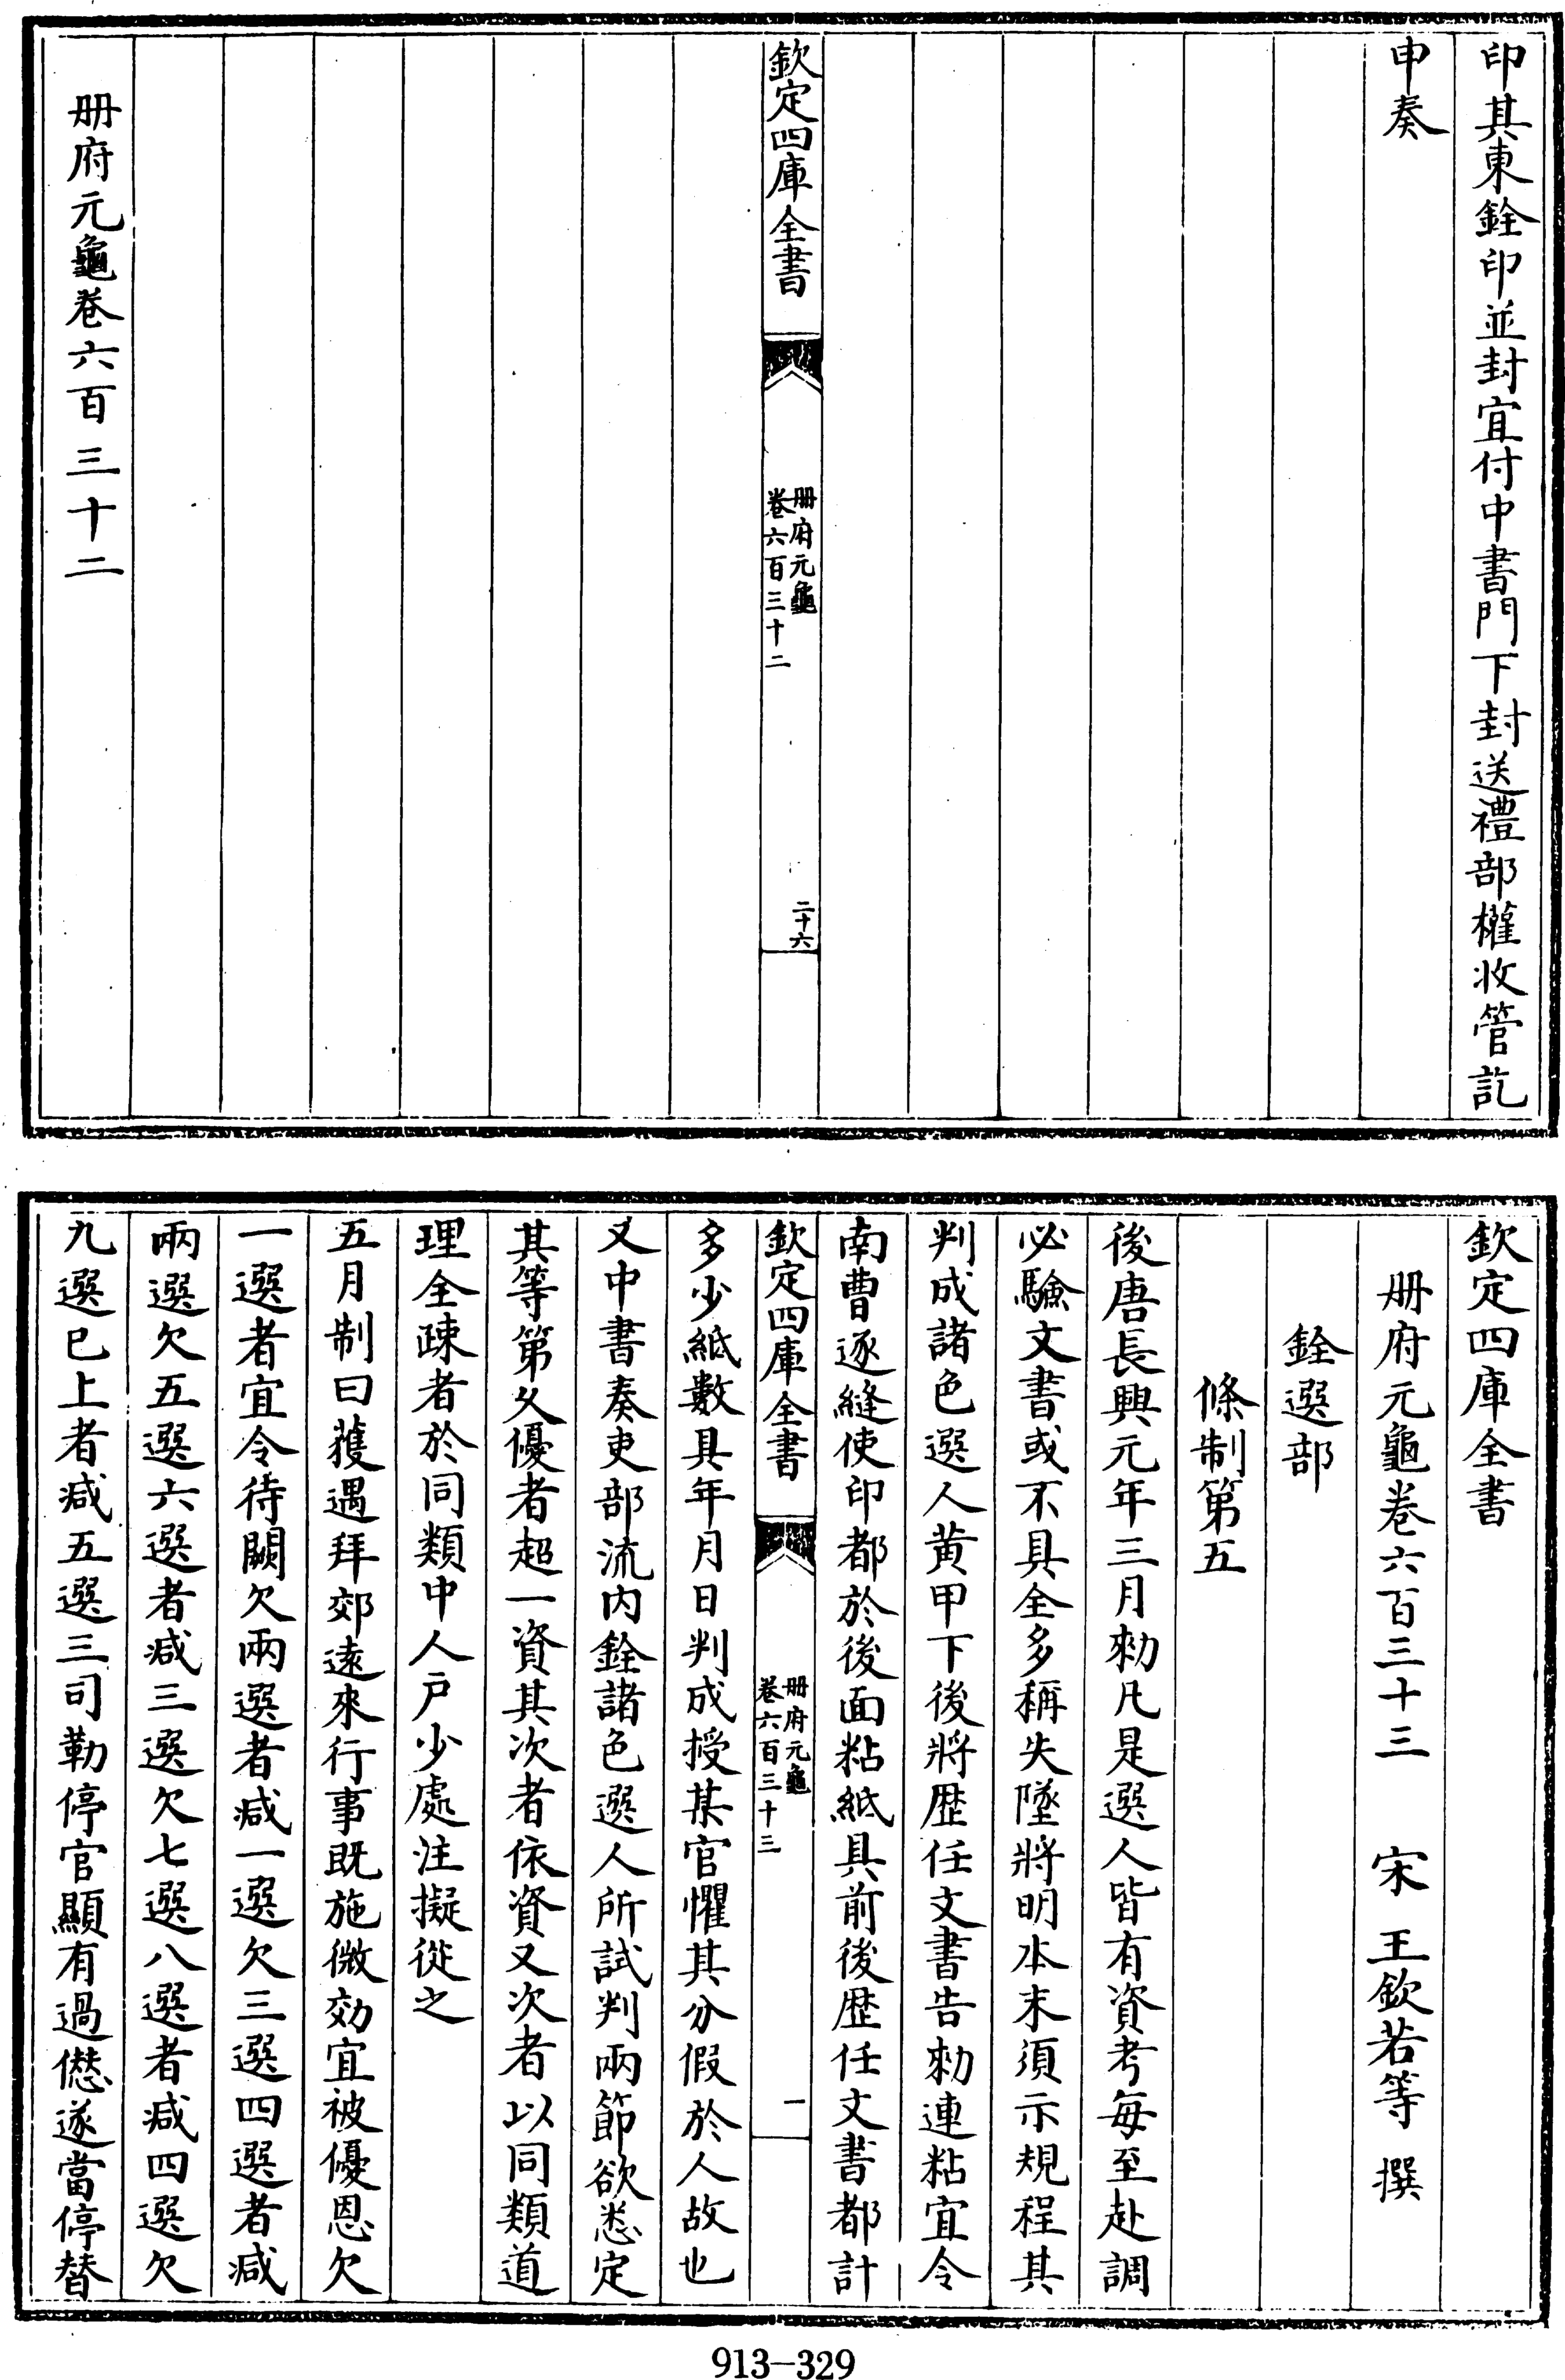 印其東銓印並封宜付中書門下封送禮部權收管訖
申奏
欽定四庫全書
册府元龜
卷六百三十二
二十六
册府元龜卷六百三十二
欽定四庫全書
册府元龜卷六百三十三 宋 王欽若等 撰
銓選部
條制第五
後唐長興元年三月勑凡是選人皆有資考每至赴調
必驗文書或不具全多稱失墜將明本末須示規程其
判成諸色選人黃甲下後將歷任文書告勑連粘宜令
南曹逐縫使印都於後面粘紙具前後歷任文書都計
欽定四庫全書
册府元龜
卷六百三十三
一
多少紙數具年月日判成授某官懼其分假於人故也
又中書奏吏部流内銓諸色選人所試判兩節欲悉定
其等第文優者超一資其次者依資又次者以同類道
理全疎者於同類中人户少處注擬從之
五月制曰獲遇拜郊遠來行事既施微効宜被優恩欠
一選者宜令待闕欠兩選者减一選欠三選四選者减
兩選欠五選六選者减三選欠七選八選者减四選欠
九選已上者减五選三司勒停官顯有過僽遂當停替
913-329